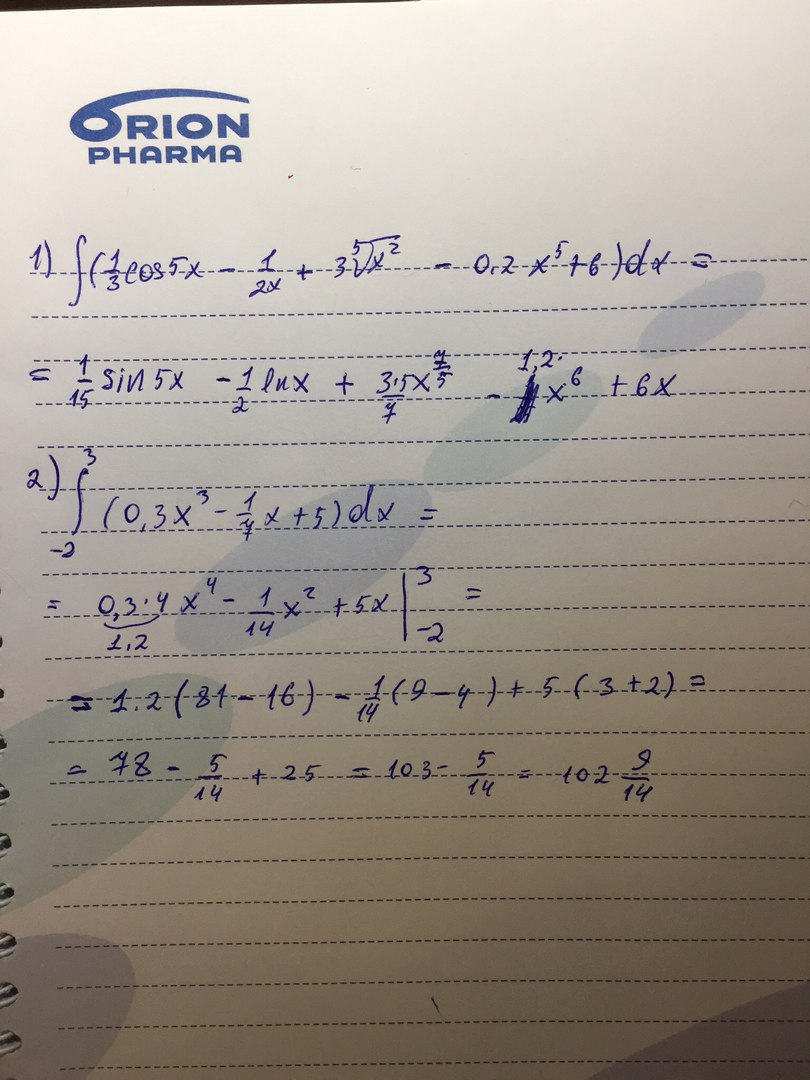 ORION
PHARMA
1) ∫(1/3 cos 5x - 1/2x + 3 ⁵√x² - 0,2 x⁵ + 6)dx =
= 1/15 sin 5x - 1/2 ln x + 3·5x^(7/5)/7 - 1,2· x⁶ + 6x
2) ∫₋₂³ (0,3x³ - 1/7 x + 5)dx =
= 0,3·4 x⁴ - 1/14 x² + 5x |₋₂³ =
1,2
= 1.2(81 - 16) - 1/14 (9 - 4) + 5 (3 + 2) =
= 78 - 5/14 + 25 = 103 - 5/14 = 102 9/14